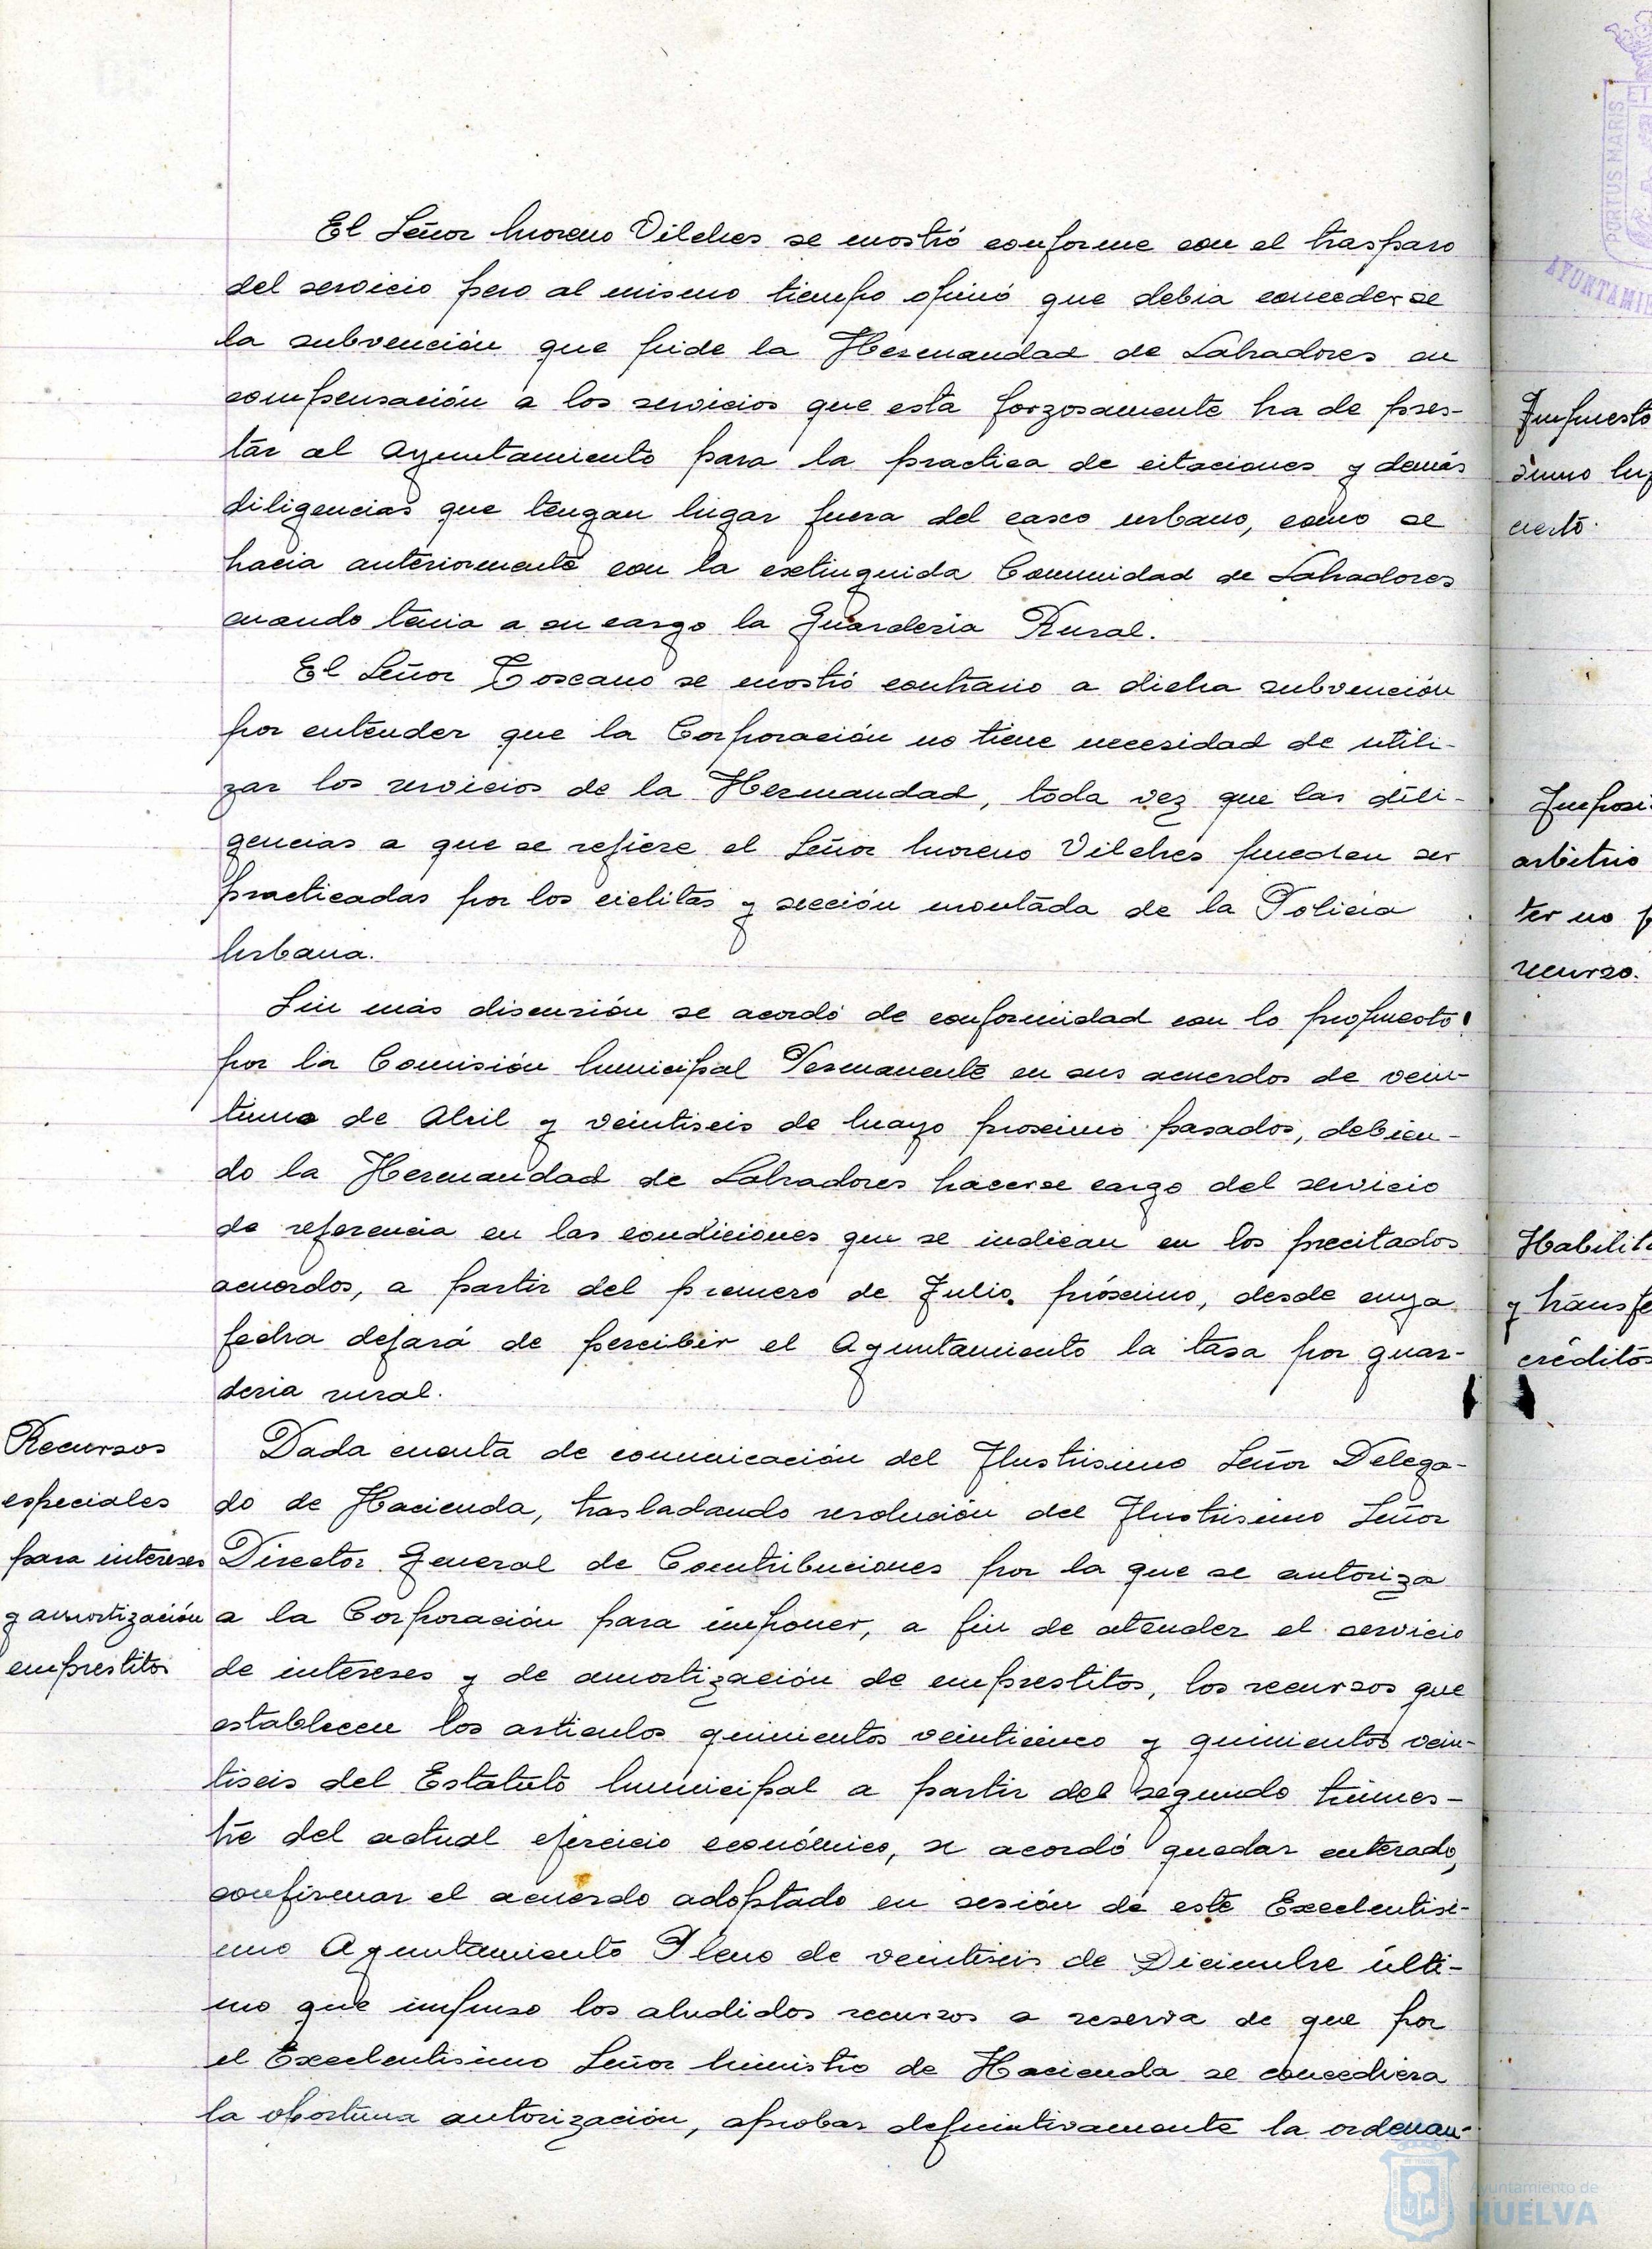 El Señor Moreno Vilches se mostró conforme con el traspaso
del servicio pero al mismo tiempo opinó que debia concederse
la subvención que pide la Hermandad de Labradores en
compensación a los servicios que esta forzosamente ha de pres-
tar al Ayuntamiento para la practica de citaciones y demás
diligencias que tengan lugar fuera del casco urbano, como se
hacia anteriormente con la extinguida Comunidad de Labradores
cuando tenia a su cargo la Guarderia Rural.
El Señor Toscano se mostró contrario a dicha subvención
por entender que la Corporación no tiene necesidad de utili-
zar los servicios de la Hermandad, toda vez que las dili-
gencias a que se refiere el Señor Moreno Vilches pueden ser
practicadas por los ciclitas y sección montada de la Policia
Urbana.
Sin más discusión se acordó de conformidad con lo propuesto
por la Comisión Municipal Permanente en sus acuerdos de vein-
tiuno de Abril y veintiseis de Mayo proximo pasados, debien-
do la Hermandad de Labradores hacerse cargo del servicio
de referencia en las condiciones que se indican en los precitados
acuerdos, a partir del primero de Julio próximo, desde cuya
fecha dejará de percibir el Ayuntamiento la tasa por guar-
deria rural.
Recursos
especiales
para intereses
y amortización
emprestitos
Dada cuenta de comunicación del Ilustrisimo Señor Delega-
do de Hacienda, trasladando resolución del Ilustrisimo Señor
Director General de Contribuciones por la que se autoriza
a la Corporación para imponer, a fin de atender el servicio
de intereses y de amortización de emprestitos, los recursos que
establecen los articulos quinientos veinticinco y quinientos vein-
tiseis del Estatuto Municipal a partir del segundo trimes-
tre del actual ejercicio económico, se acordó quedar enterado,
confirmar el acuerdo adoptado en sesión de este Excelentisi-
mo Ayuntamiento Pleno de veintiseis de Diciembre últi-
mo que impuso los aludidos recursos a reserva de que por
el Excelentisimo Señor Ministro de Hacienda se concediera
la oportuna autorización, aprobar definitivamente la ordenan-
Impuesto
cierto.
arbitrio
ter no
recurso.
Habilit
y transfe
créditos
PORTUS MARIS
AYUNTAMIE
Ayuntamiento de
HUELVA